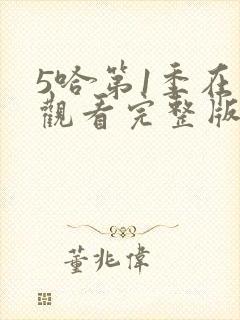 5哈第1季在
觀看完整版
董兆偉